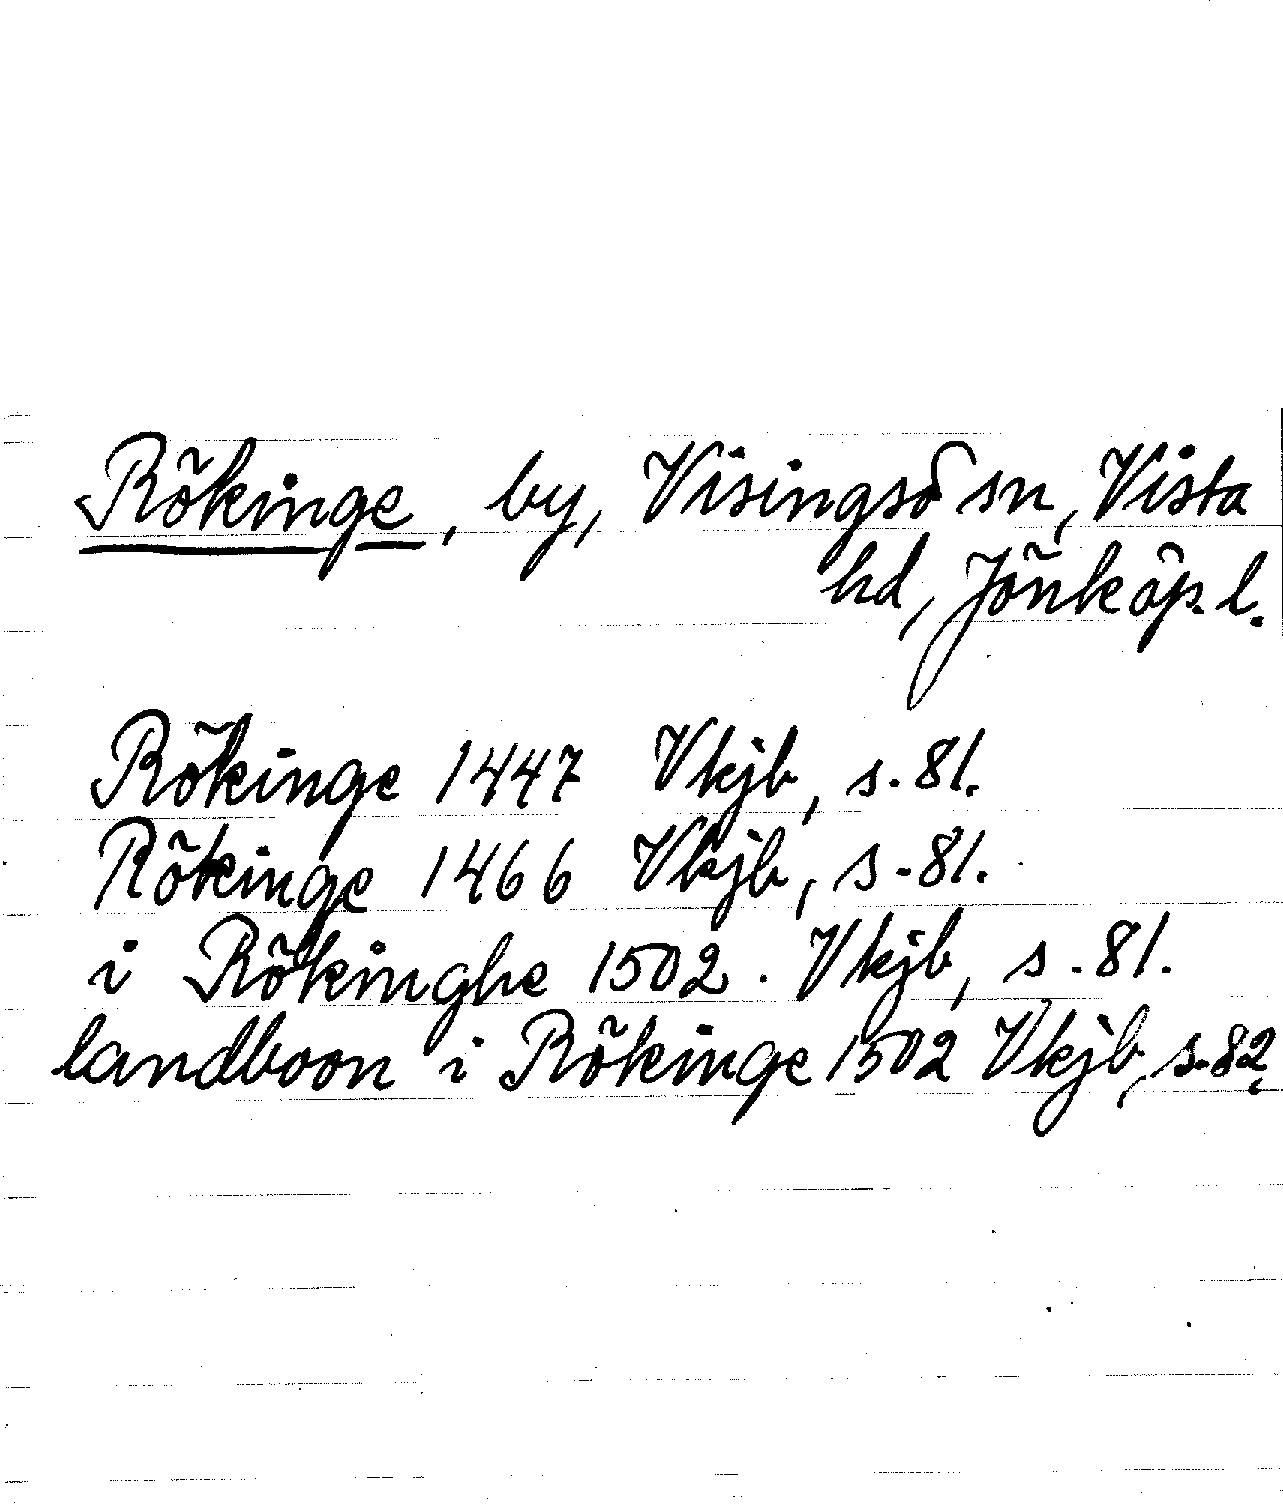 Rökinge, by, Visingsö sn, Vista
hd, Jönköp. l.
Rökinge 1447 Vkjb, s. 81.
Rökinge 1466 Vkjb, s. 81.
i Rökinghe 1502. Vkjb, s. 81.
landboon i Rökinge 1502 Vkjb, s. 82.